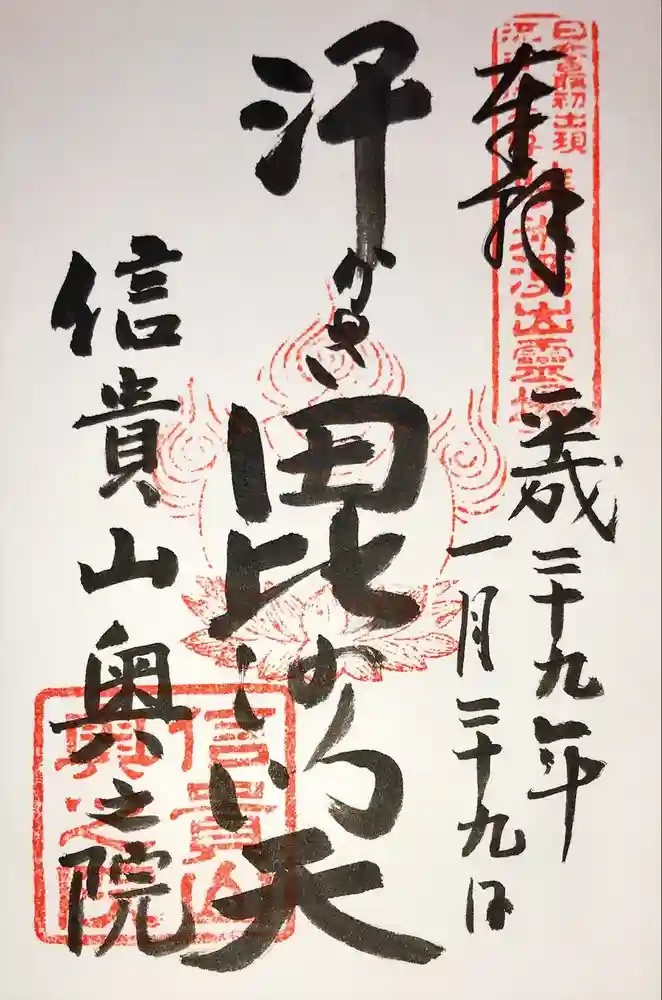 奉拝
平成二十九年
一月二十九日
汗かき毘沙門天
信貴山奥之院
日本最初出現
信貴山
奥之院